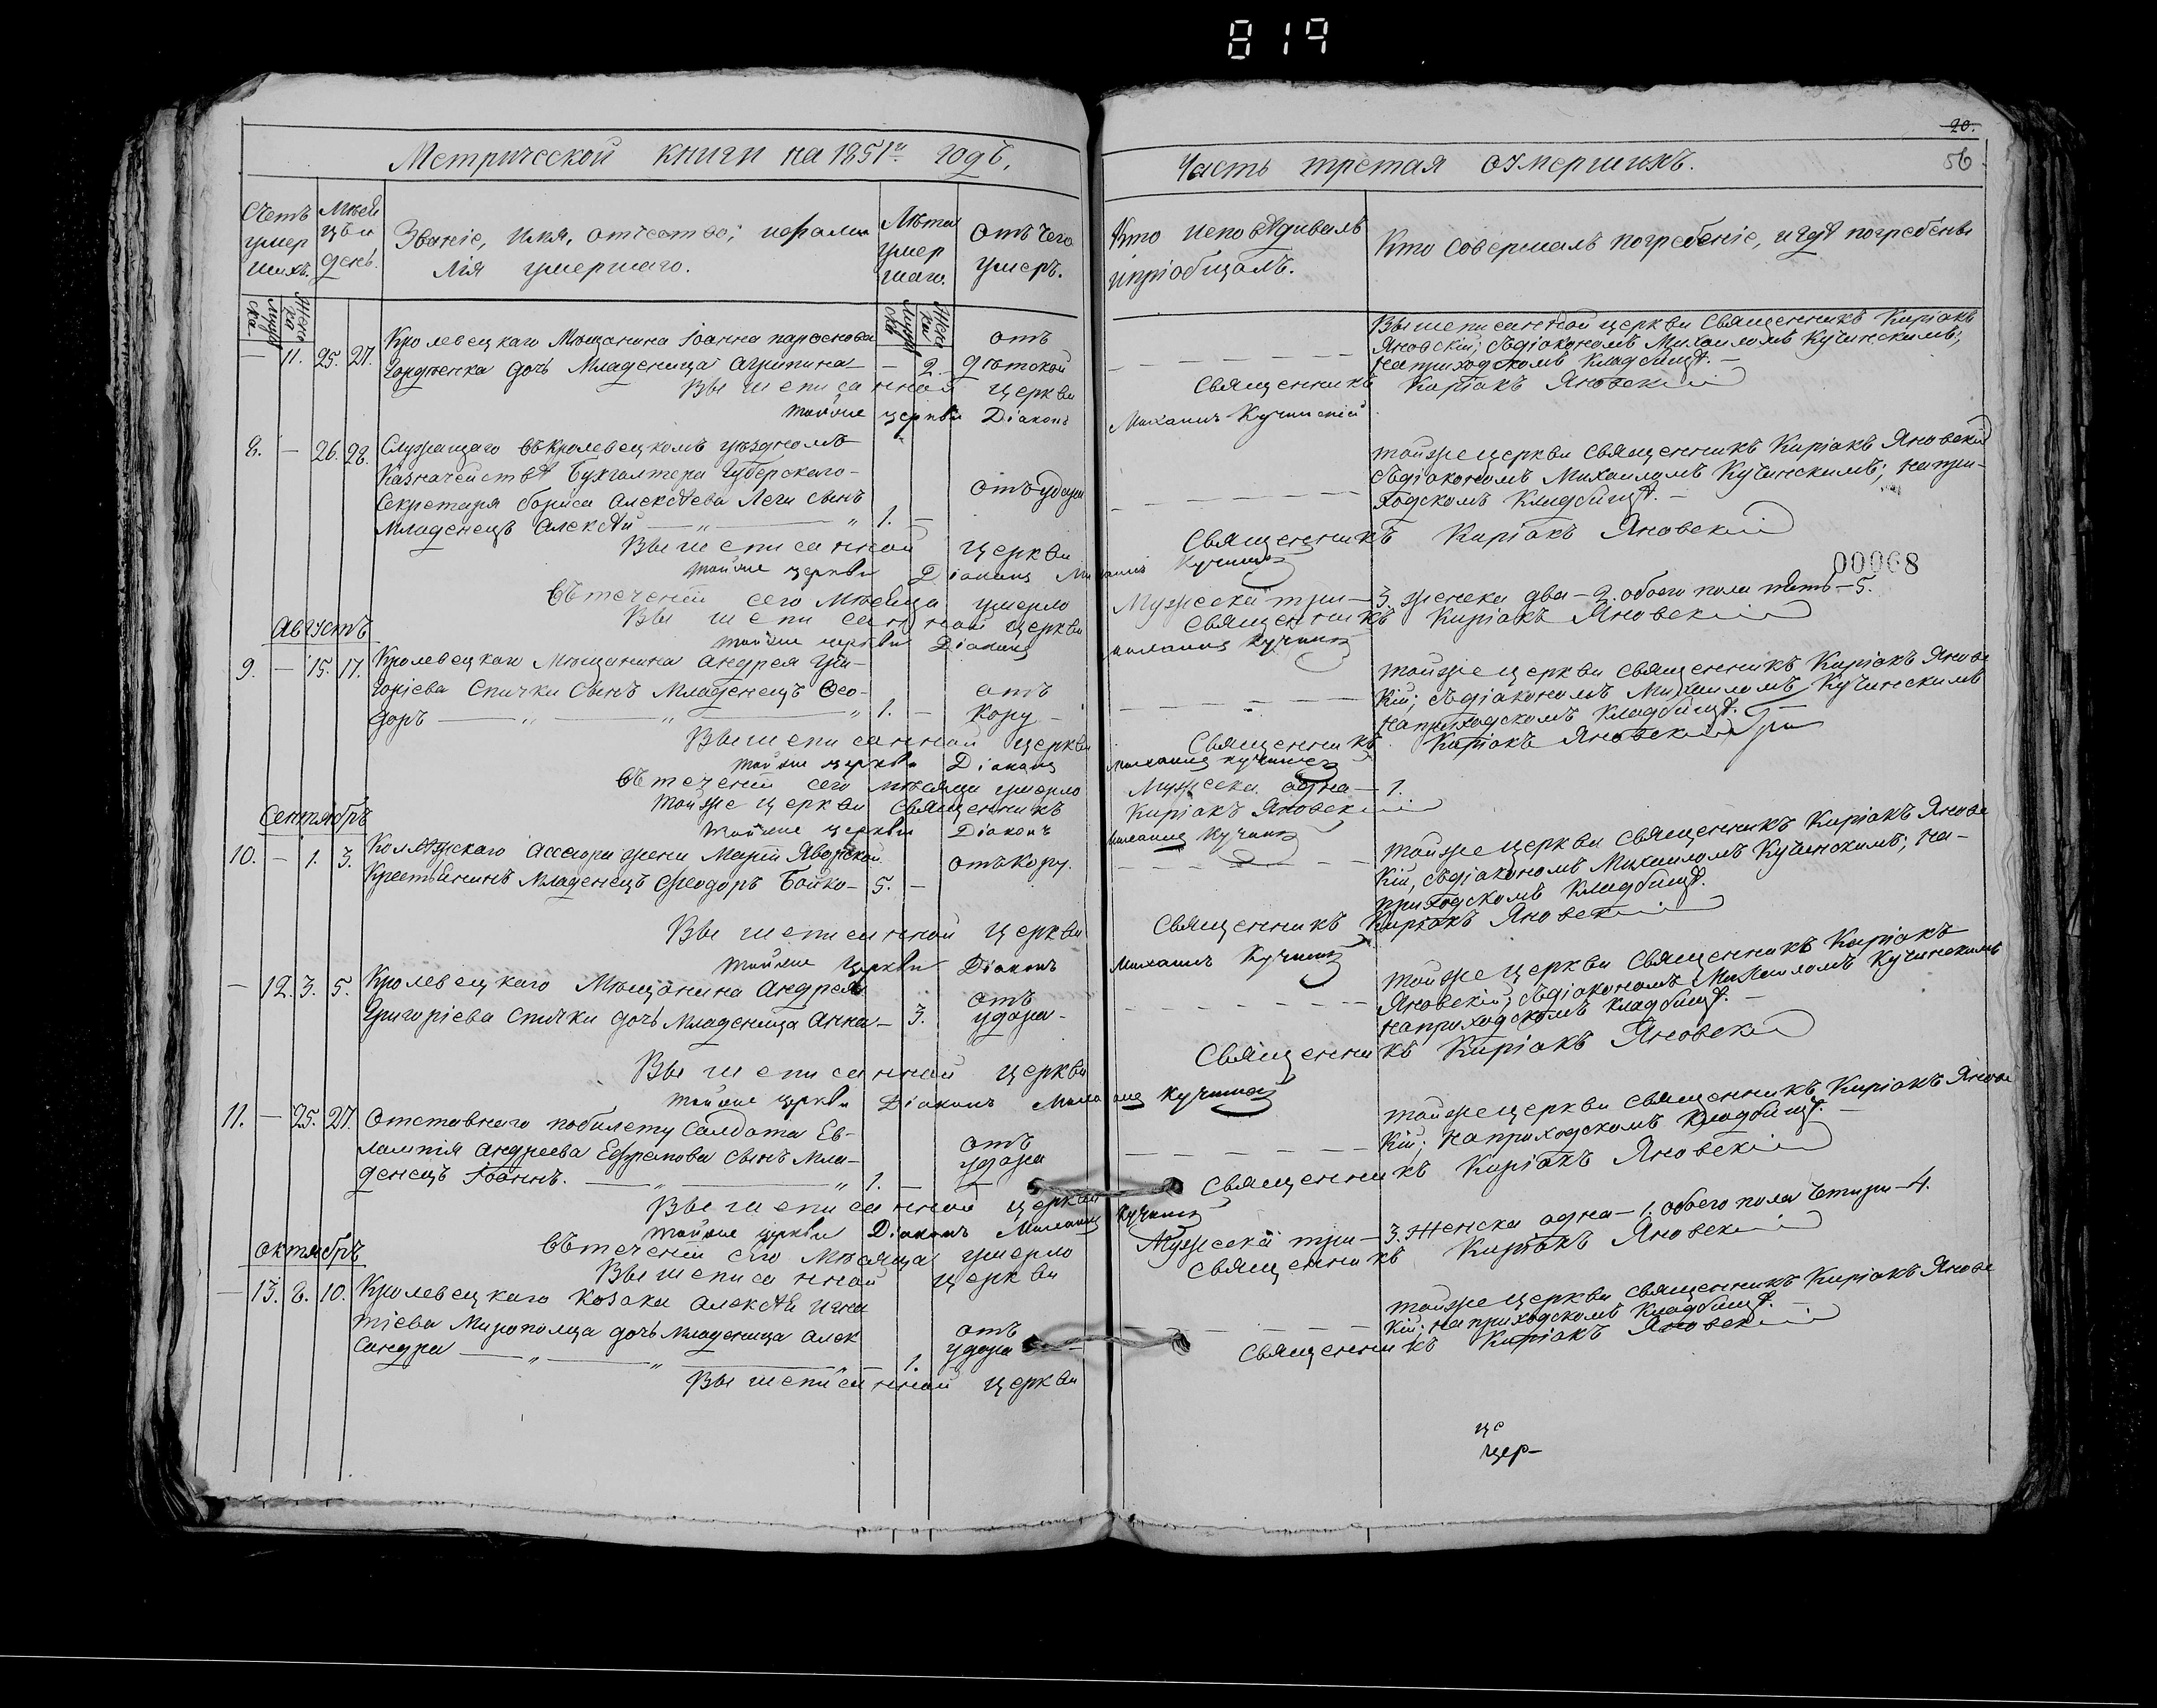 819
20.
56
Метрической книги на 1851й годъ,
Часть третая о умершихъ.
Счетъ умершихъ.
Мѣсяцъ и день.
Званіе, имя, отчество, и фамилія умершаго.
Лѣта умершаго.
Отъ чего умеръ.
Кто исповѣдивалъ и пріобщалъ.
Кто совершалъ погребеніе, и гдѣ погребены
Мужеска
Женска
Мужеска
Женска
— 11. 25. 27. Кролевецкаго Мѣщанина Іоанна
дочь Младеница Агрипина — 2. отъ дѣтской
Вышеписанной церкви Священникъ Киріакъ
Яновскій; съ діакономъ Михаиломъ Кучинскимъ;
на приходскомъ кладбищѣ. —
Вышеписанной церкви Священникъ Киріакъ Яновскій
тойже церкви Діаконъ Михаилъ Кучинскій
8. — 26. 28. Служащаго въ Кролевецкомъ уѣздномъ
Казначействѣ Бухгалтера Губерскаго
Секретаря Бориса Алексѣева Леги сынъ
Младенецъ Алексѣй — „ — „ 1. — отъ удара
тойже церкви Священникъ Киріакъ Яновскій
съ діакономъ Михаиломъ Кучинскимъ; на при-
ходскомъ Кладбищѣ. —
Вышеписанной церкви Священникъ Киріакъ Яновскій
тойже церкви Діаконъ Михаилъ Кучинскій
00068
Въ теченіи сего Мѣсяца умерло Мужеска три — 3. женска два — 2. обоего пола пять — 5.
Вышеписанной церкви Священникъ Киріакъ Яновскій
тойже церкви Діаконъ Михаилъ Кучинскій
Августъ
9. — 15. 17. Кролевецкаго Мѣщанина Андрея Гри-
горіева Спички сынъ Младенецъ Ѳео-
доръ — „ — „ — „ 1. — отъ кору —
тойже церкви Священникъ Киріакъ Яновс
кій; съ діакономъ Михаиломъ Кучинскимъ
на приходскомъ кладбищѣ.
Вышеписанной церкви Священникъ Киріакъ Яновскій
тойже церкви Діаконъ Михаилъ Кучинскій
Въ теченіи сего мѣсяца умерло Мужеска одна — 1.
тойже церкви Священникъ Киріакъ Яновскій
тойже церкви Діаконъ Михаилъ Кучинскій
Сентябрь
10. — 1. 3. Коллежскаго Ассесора жени Маріи Яворской
Крестьянинъ Младенецъ Ѳеодоръ Бойко — 5. — отъ кору.
тойже церкви Священникъ Киріакъ Яновс
кій, съ діакономъ Михаиломъ Кучинскимъ; на —
приходскомъ кладбищѣ.
Вышеписанной церкви Священникъ Киріакъ Яновскій
тойже церкви Діаконъ Михаилъ Кучинскій
— 12. 3. 5. Кролевецкаго Мѣщанина Андрея
Григоріева Спички дочь Младеница Анна — 3. отъ удара —
тойже церкви Священникъ Киріакъ
Яновскій; съ діакономъ Михаиломъ Кучинскимъ
на приходскомъ кладбищѣ. —
Вышеписанной церкви Священникъ Киріакъ Яновскій
тойже церкви Діаконъ Михаилъ Кучинскій
11. — 25. 27. Отставнаго по билету Салдата Ев-
лампія Андреева сынъ Мла-
денецъ Іоаннъ. — „ — „ 1. — отъ удара
тойже церкви Священникъ Киріакъ Яновс
кій; на приходскомъ кладбищѣ. —
Вышеписанной церкви Священникъ Киріакъ Яновскій
тойже церкви Діаконъ Михаилъ Кучинскій
Въ теченіи сего Мѣсяца умерло Мужеска три — 3. Женска одна — 1. обоего пола четыри — 4.
Вышеписанной церкви Священникъ Киріакъ Яновскій
Октябрь
— 13. 8. 10. Кролевецкаго Козака Алексѣя Игна
тіева Миропольца дочь младеница Алек
сандра — „ — „ — „ — 1. отъ удара —
тойже церкви Священникъ Киріакъ Яновс
кій; на приходскомъ кладбищѣ. —
Вышеписанной церкви Священникъ Киріакъ Яновскій
це
цер—